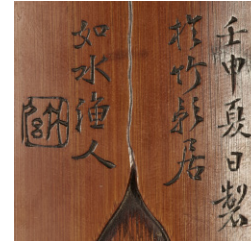 壬申夏日製
於竹影居
如水漁人